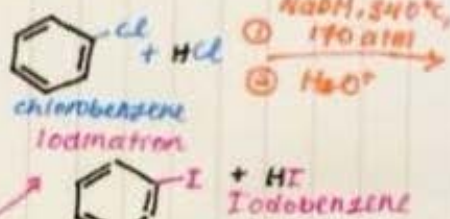 Cl
+ HCl
① NaOH, 340°C,
170 atm
② H₃O⁺
chlorobenzene
Iodination
I + HI
Iodobenzene